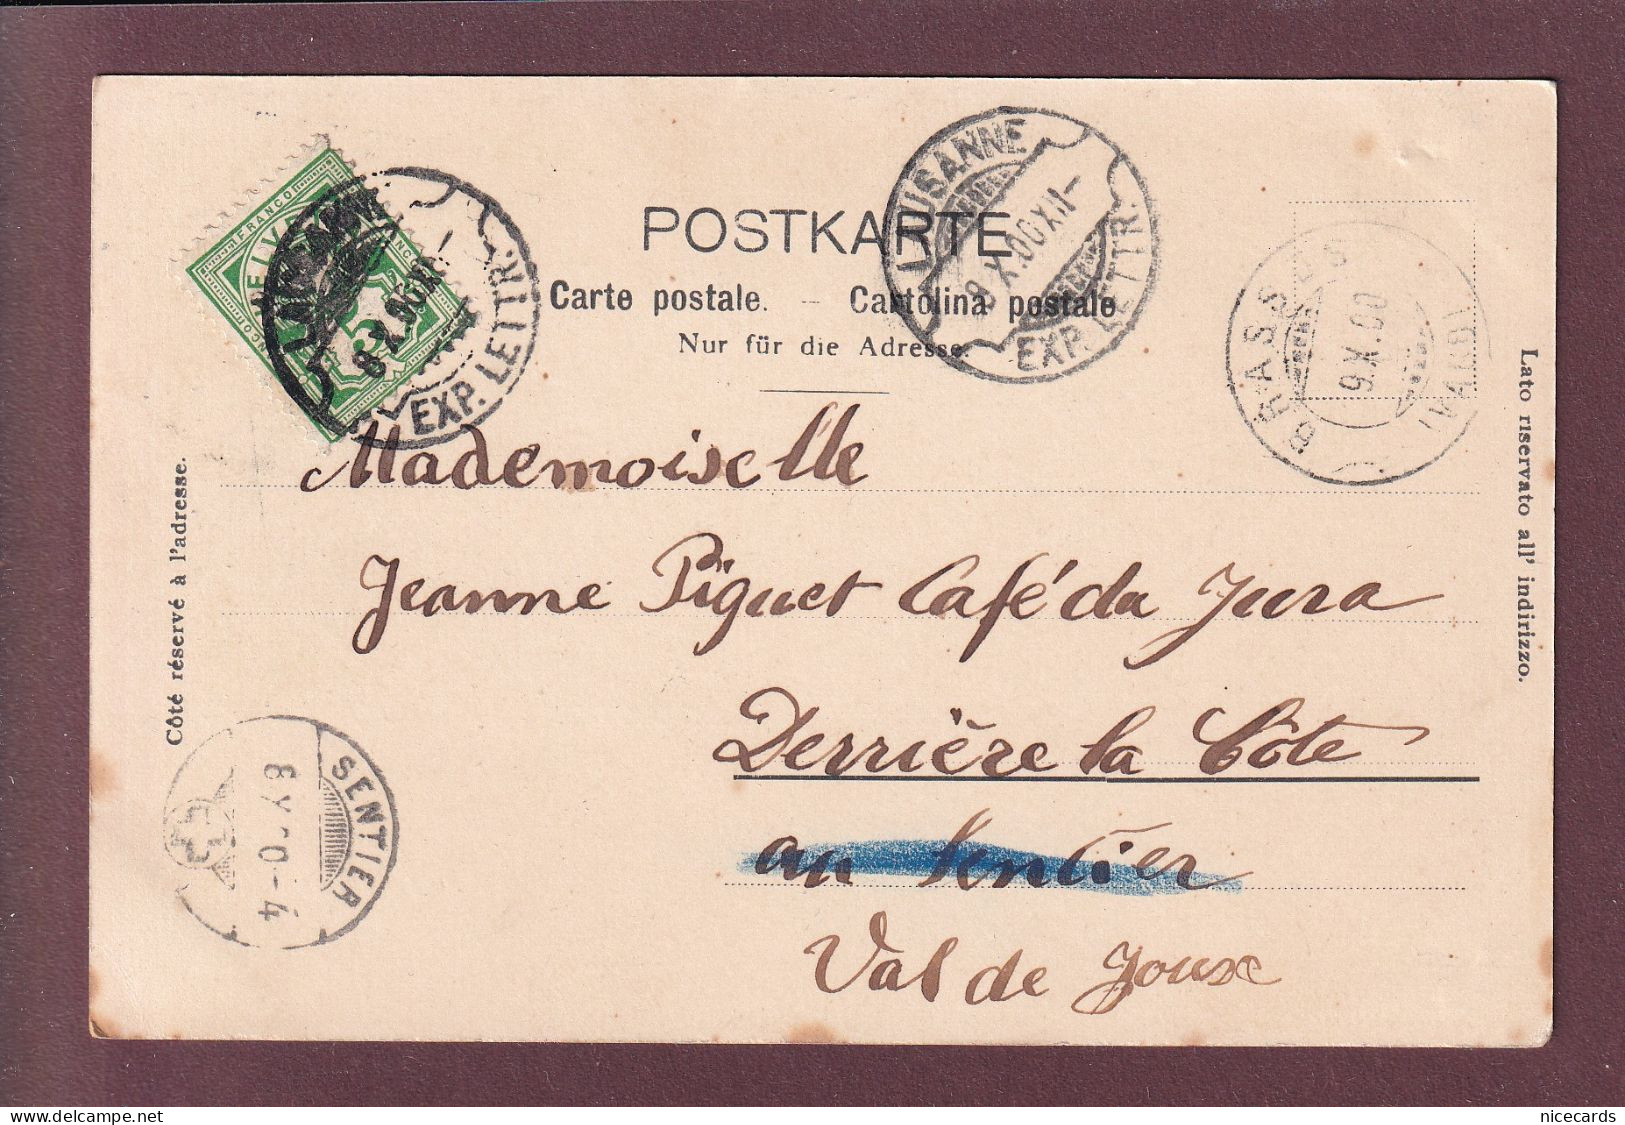 POSTKARTE
Carte postale. – Cartolina postale
Nur für die Adresse.
FRANCO
5
8 X.00
EXP. LETTR.
LAUSANNE
9 X.00 XII–
EXP. LETTR.
BRASSUS
9.X.00
(VAUD)
Mademoiselle
Jeanne Piguet Café du Jura
Derrière la Côte
au Sentier
Val de Joux
Côté réservé à l'adresse.
Lato riservato all' indirizzo.
SENTIER
delcampe.net
nicecards